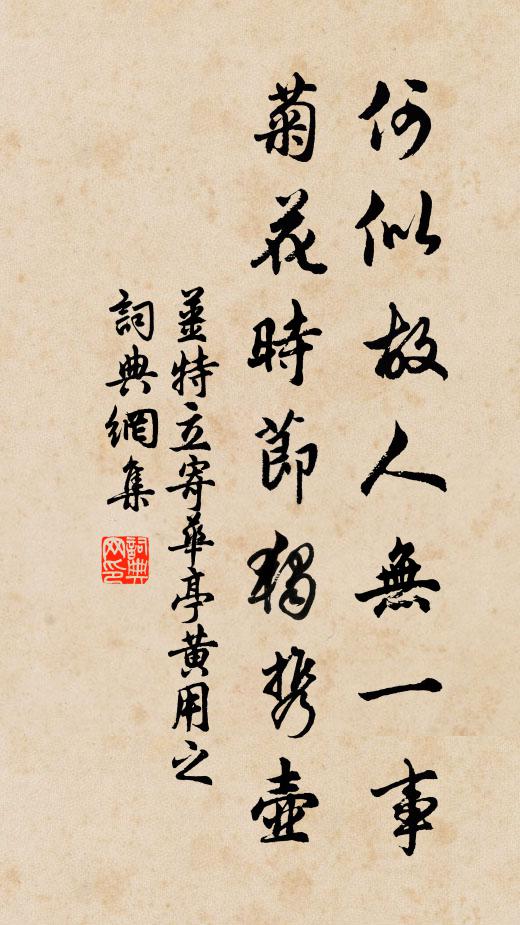 何似故人無一事
菊花時節獨携壺
薑特立寄華亭黄用之
詞典網集
詞典网印